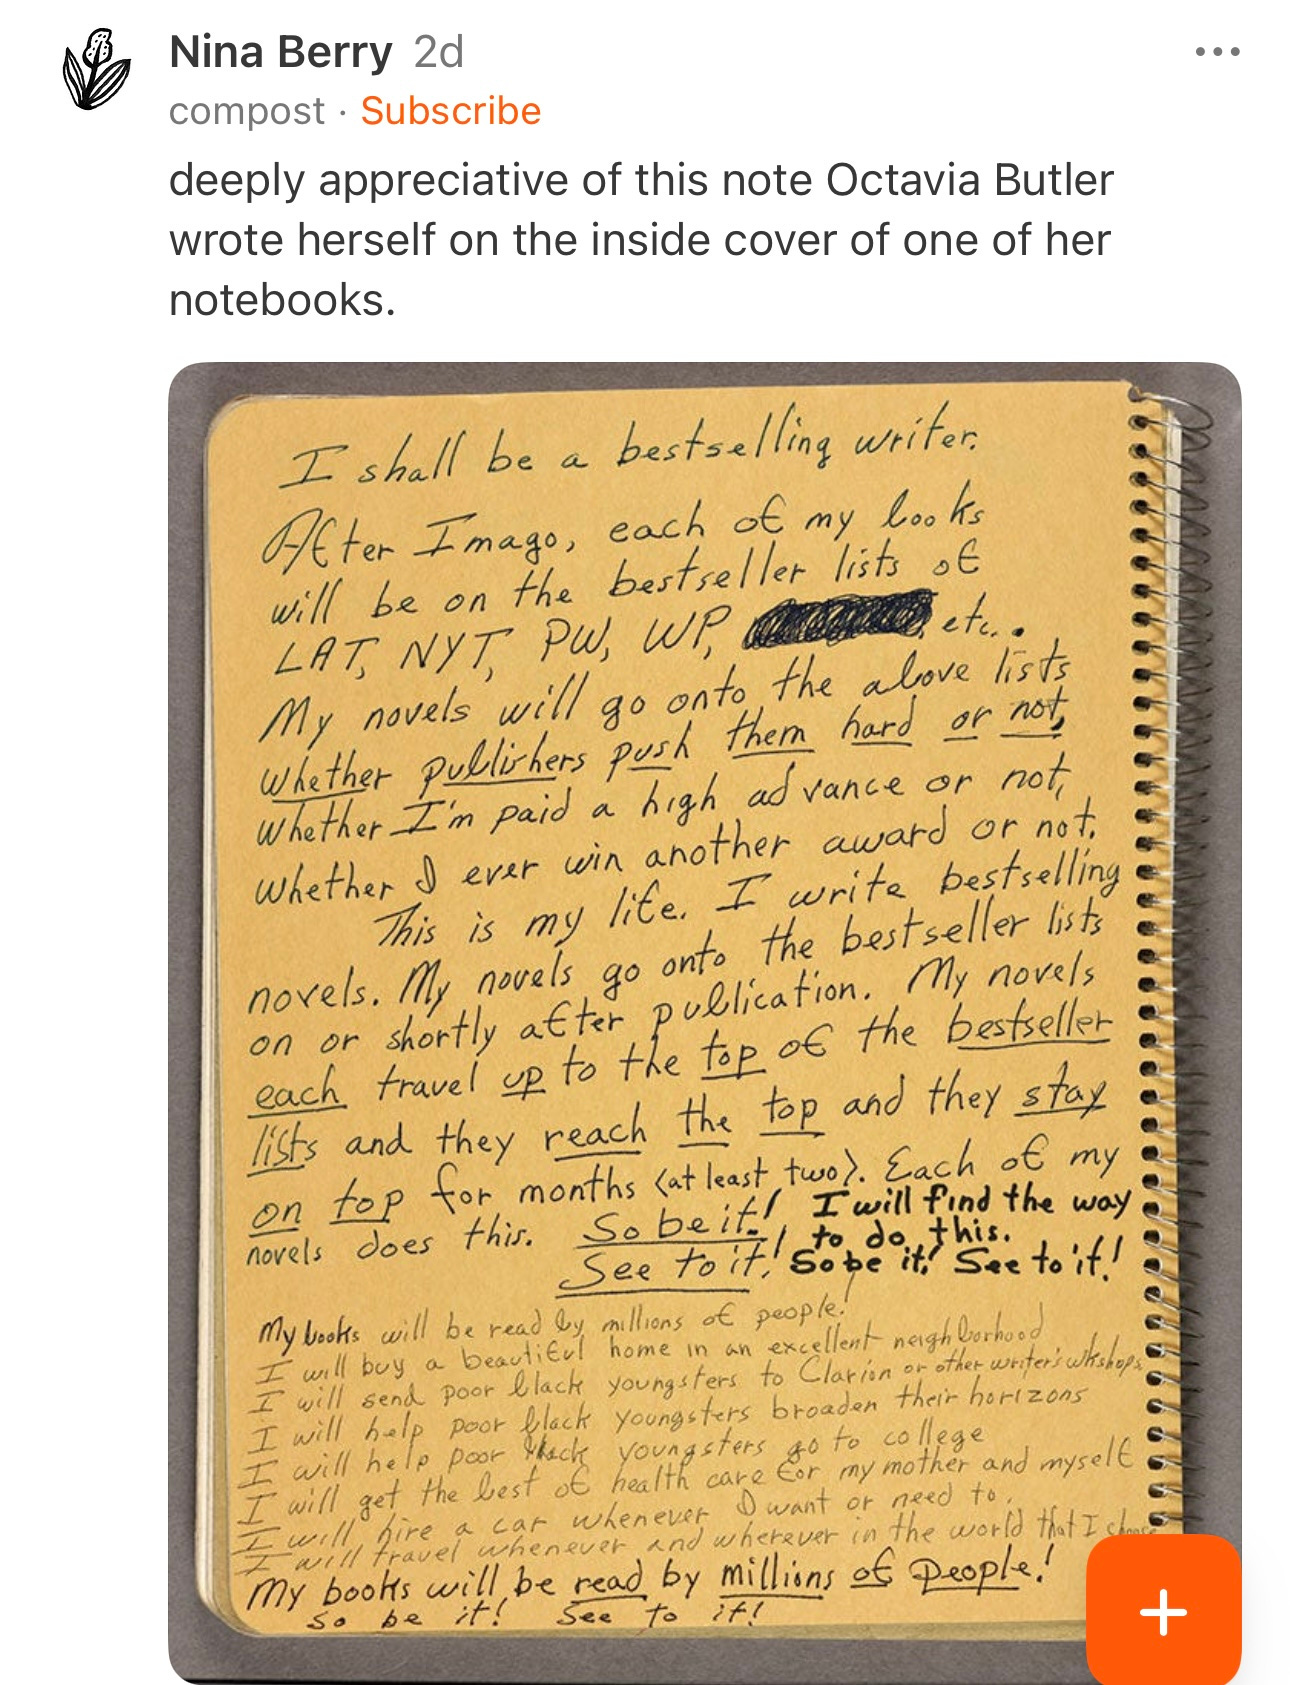 Nina Berry 2d
compost · Subscribe
deeply appreciative of this note Octavia Butler
wrote herself on the inside cover of one of her
notebooks.
I shall be a bestselling writer.
After Imago, each of my books
will be on the bestseller lists of
LAT, NYT, PW, WP, etc..
My novels will go onto the above lists
whether publishers push them hard or not,
whether I'm paid a high advance or not,
whether I ever win another award or not.
This is my life. I write bestselling
novels. My novels go onto the bestseller lists
on or shortly after publication. My novels
each travel up to the top of the bestseller
lists and they reach the top and they stay
on top for months (at least two). Each of my
novels does this. So be it! I will find the way
to do this.
See to it! So be it! See to it!
My books will be read by millions of people!
I will buy a beautiful home in an excellent neighborhood
I will send poor black youngsters to Clarion or other writer's wkshops
I will help poor black youngsters broaden their horizons
I will help poor black youngsters go to college
I will get the best of health care for my mother and myself
I will hire a car whenever I want or need to.
I will travel whenever and wherever in the world that I choose
My books will be read by millions of people!
So be it! See to it!